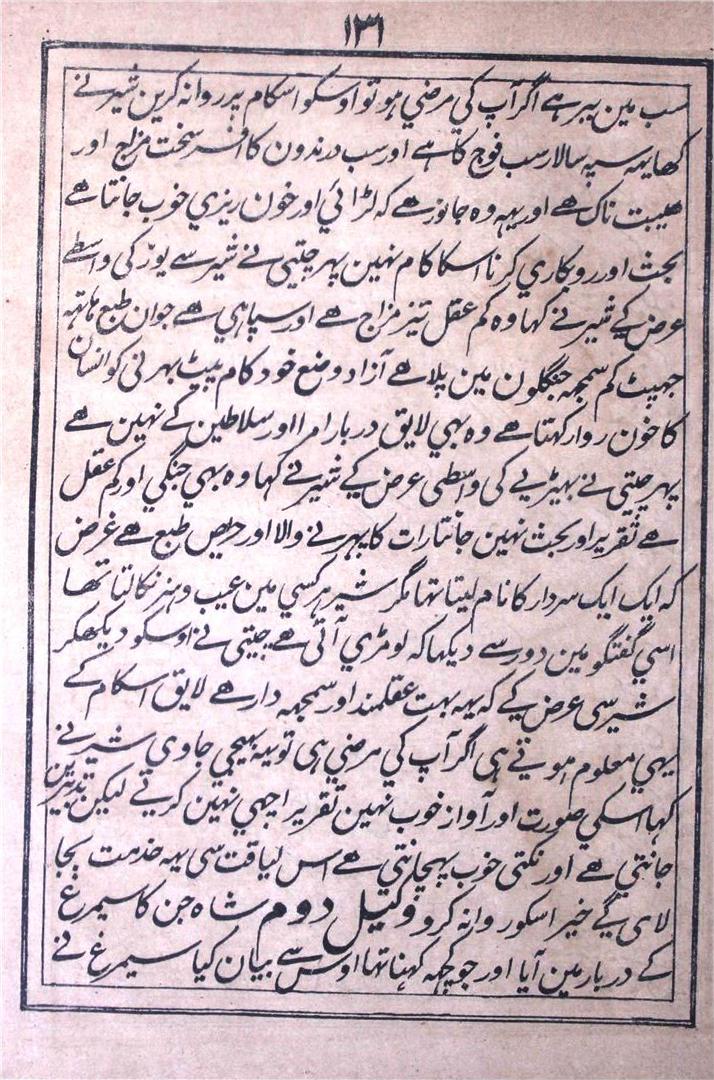 ۱۳۱
سب مین ببر ہے اگر آپ کي مرضي ہو تو اوسکو اسکام پر روانہ کرین شیر نے
کہا یہہ سپہ سالار سب فوج کا ہے اور سب درندون کا افسر سخت مزاج اور
ھیبت ناک ھے اور یہہ وہ جانور ھے کہ لڑائي اور خون ریزي خوب جانتا ھے
بحث اور روبکاري کرنا اسکا کام نہین پہر چیتي نے شیر سے یوز کی واسطے
عرض کیے شیر نے کہا وہ کم عقل تیز مزاج ھے اور سپاہي ھے جوان طبع ہاتہہ
جہپٹ کم سمجہہ جنگلون مین پلا ھے آزاد وضع خود کام پیٹ بہرنی کو انسان
کا خون روا رکہتا ھے وہ بہي لایق دربار امرا اور سلاطین کے نہین ھے
پہر چیتي نے بہیڑیے کی واسطی عرض کیے شیر نے کہا وہ بہي جنگي اور کم عقل
ھے تقریر اور بحث نہین جانتا رات کا پہرنے والا اور حریص طبع ھے غرض
کہ ایک ایک سردار کا نام لیتا تہا مگر شیر ہر کسي مین عیب و ہنر نکالتا تھا
اسي گفتگو مین دور سے دیکہا کہ لومڑي آئي ھے چیتي نے اوسکو دیکھکر
شیر سی عرض کیے کہ یہہ بہت عقلمند اور سمجہہ دار ھے لایق اسکام کے
یہي معلوم ہوتے ہی اگر آپ کي مرضي ہی تو یہہ بہیجي جاوي شیر نے
کہا اسکي صورت اور آواز خوب نہین تقریر اچہي نہین کرتے لیکن تدبیرین
جانتي ھے اور نکتی خوب پہچانتي ھے اس لیاقت سی یہہ خدمت بجا
لای گے خیر اسکو روانہ کرو وکیل دوم شاہ جن کا سیمرغ
کے دربار مین آیا اور جو کچہہ کہنا تہا اوس سے بیان کیا سیمرغ نے